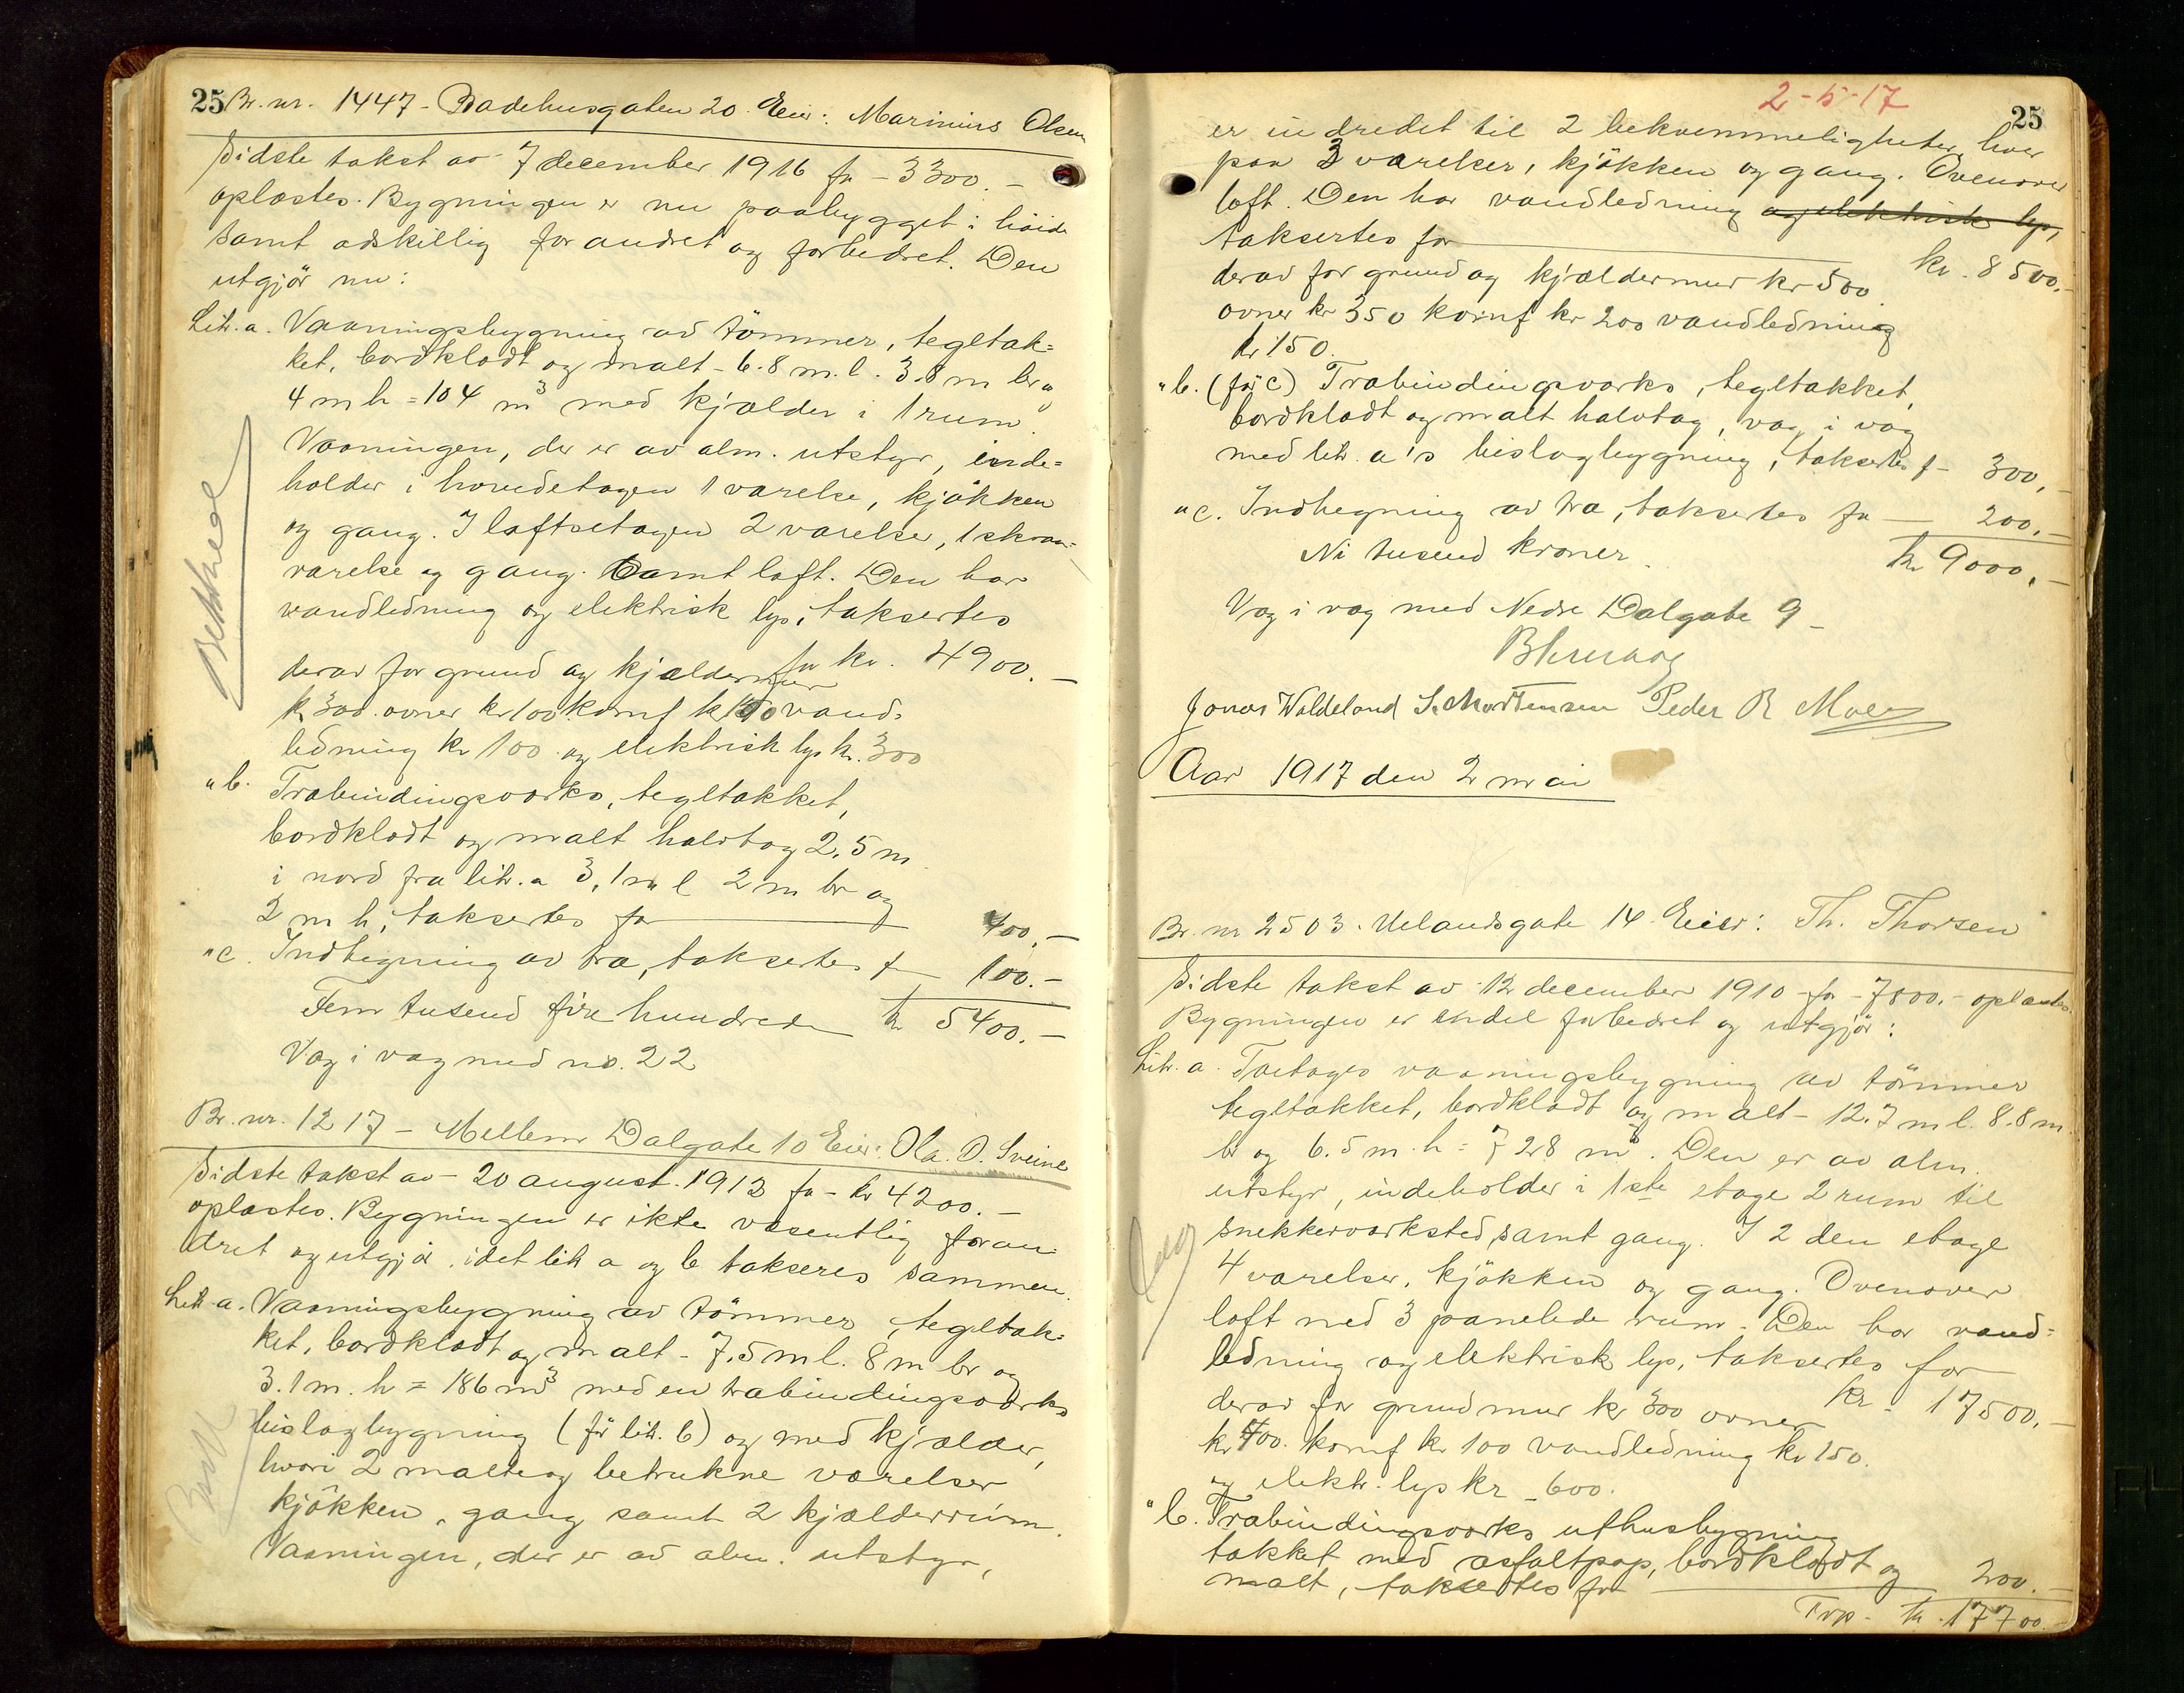 25 Br. nr. 1447 - Badehusgaten 20. Eier: Marinius Olsen
Sidste takst av 7 december 1916 for - 3300. -
oplæstes. Bygningen er nu paabygget i höide
samt adskillig forandret og forbedret. Den
utgjör nu:
Litr. a. Vaaningsbygning av tömmer, tegltak=
ket, bordklædt og malt - 6.8 m. l. 3.8 m br og
4 m h = 104 m3 med kjælder i 1 rum.
Vaaningen, der er av alm. utstyr, inde=
holder i hovedetagen 1 værelse, kjökken
og gang. I loftsetagen 2 værelse, 1 skraa=
værelse og gang. Samt loft. Den har
vandledning og elektrisk lys, taksertes
for kr. 4900. -
derav for grund og kjældermur
kr 300. ovner kr 100 komf kr 100 vand=
ledning kr 100. og elektrisk lys kr. 300
" b. Træbindingsværks, tegltakket,
bordklædt og malt halvtag 2,5 m
i nord fra litr. a 3,1 m l 2 m br og
2 m h, taksertes for 400. -
" c. Indhegning av træ, taksertes f - 100. -
Fem tusend fire hundrede kr 5400. -
Væg i væg med no. 22
Br. nr. 1217 - Mellem Dalgate 10 Eier: Ola. O. Sveine
Sidste takst av - 20 august. 1913 for - kr 4200. -
oplæstes. Bygningen er ikke væsentlig foran=
dret og utgjör, idet litr a og b takseres sammen.
Litr. a. Vaaningsbygning av tömmer, tegltak=
ket, bordklædt og malt - 7,5 m l. 8 m br og
3.1 m. h = 186 m3 med en træbindingsværks
bislagbygning (för litr. b) og med kjælder,
hvori 2 malte og betrukne værelser
kjökken, gang samt 2 kjælderrum.
Vaaningen, der er av alm. utstyr,
2-5-17
25
er indredet til 2 bekvemmeligheter, hver
paa 3 værelser, kjökken og gang. Ovenover
loft. Den har vandledning og elektrisk lys,
taksertes for kr. 8500. -
derav for grund og kjældermur kr 500.
ovner kr 350 komf kr 200 vandledning
kr 150.
" b. (för c) Træbindingsværks, tegltakket,
bordklædt og malt halvtag, væg i væg
med litr. a's bislagbygning, taksertes f - 300, -
" c. Indhegning av træ, taksertes for - 200, -
Ni tusend kroner. kr 9000, -
Væg i væg med Nedre Dalgate 9 -
Jonas Waldeland S. Mortensen Peder R Moe
Aar 1917 den 2 mai
Br. nr 2503. Uelandsgate 14 Eier: Th. Thorsen
Sidste takst av 12 december 1910 for - 7800. - oplæstes.
Bygningen er endel forbedret og utgjör:
Litr. a. Toetages vaaningsbygning av tömmer
tegltakket, bordklædt og malt - 12.7 m l. 8.8 m
br og 6.5 m. h = 728 m3. Den er av alm.
utstyr, indeholder i 1ste etage 2 rum til
snekkerværksted samt gang. I 2 den etage
4 værelser, kjökken og gang. Ovenover
loft med 3 panelede rum. Den har vand=
ledning og elektrisk lys, taksertes for
kr. 17500, -
derav for grundmur kr 300 ovner
kr 400. komf kr 100 vandledning kr 150.
og elektr. lys kr - 600.
" b. Træbindingsværks uthusbygning
takket med asfaltpap, bordklædt og
malt, taksertes for 200. -
Trp. kr. 17700.